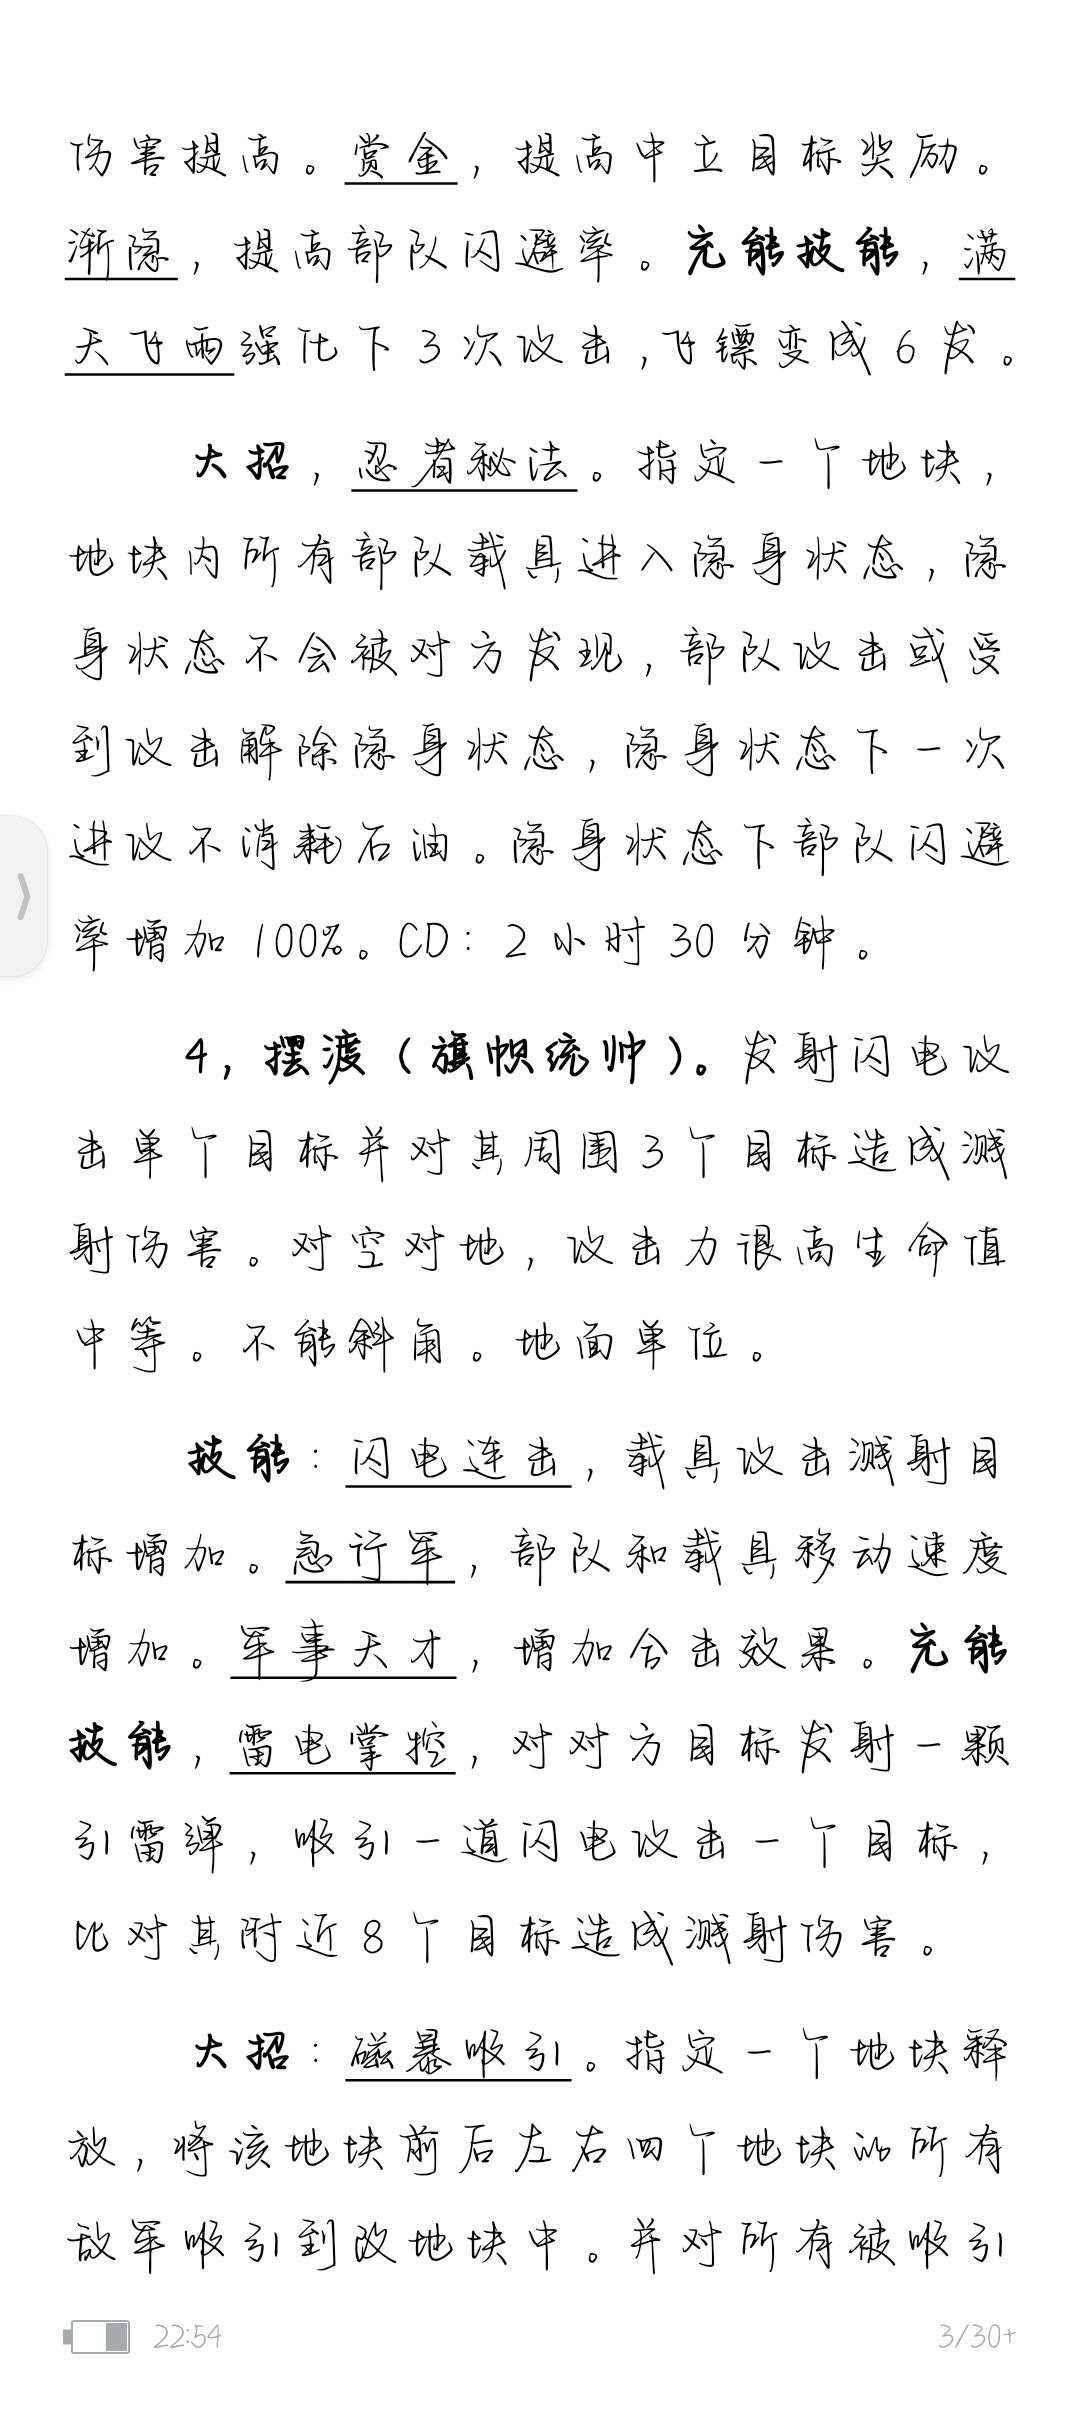 伤害提高。赏金，提高中立目标奖励。
渐隐，提高部队闪避率。充能技能，满
天飞雨强化下3次攻击，飞镖变成6发。
大招，忍者秘法。指定一个地块，
地块内所有部队载具进入隐身状态，隐
身状态不会被对方发现，部队攻击或受
到攻击解除隐身状态，隐身状态下一次
进攻不消耗石油。隐身状态下部队闪避
率增加100%。CD：2小时30分钟。
4，摆渡（旗帜统帅）。发射闪电攻
击单个目标并对其周围3个目标造成溅
射伤害。对空对地，攻击力很高生命值
中等。不能斜角。地面单位。
技能：闪电连击，载具攻击溅射目
标增加。急行军，部队和载具移动速度
增加。军事天才，增加合击效果。充能
技能，雷电掌控，对对方目标发射一颗
引雷弹，吸引一道闪电攻击一个目标，
比对其附近8个目标造成溅射伤害。
大招：磁暴吸引。指定一个地块释
放，将该地块前后左右四个地块的所有
敌军吸引到改地块中。并对所有被吸引
22:54
3/30+